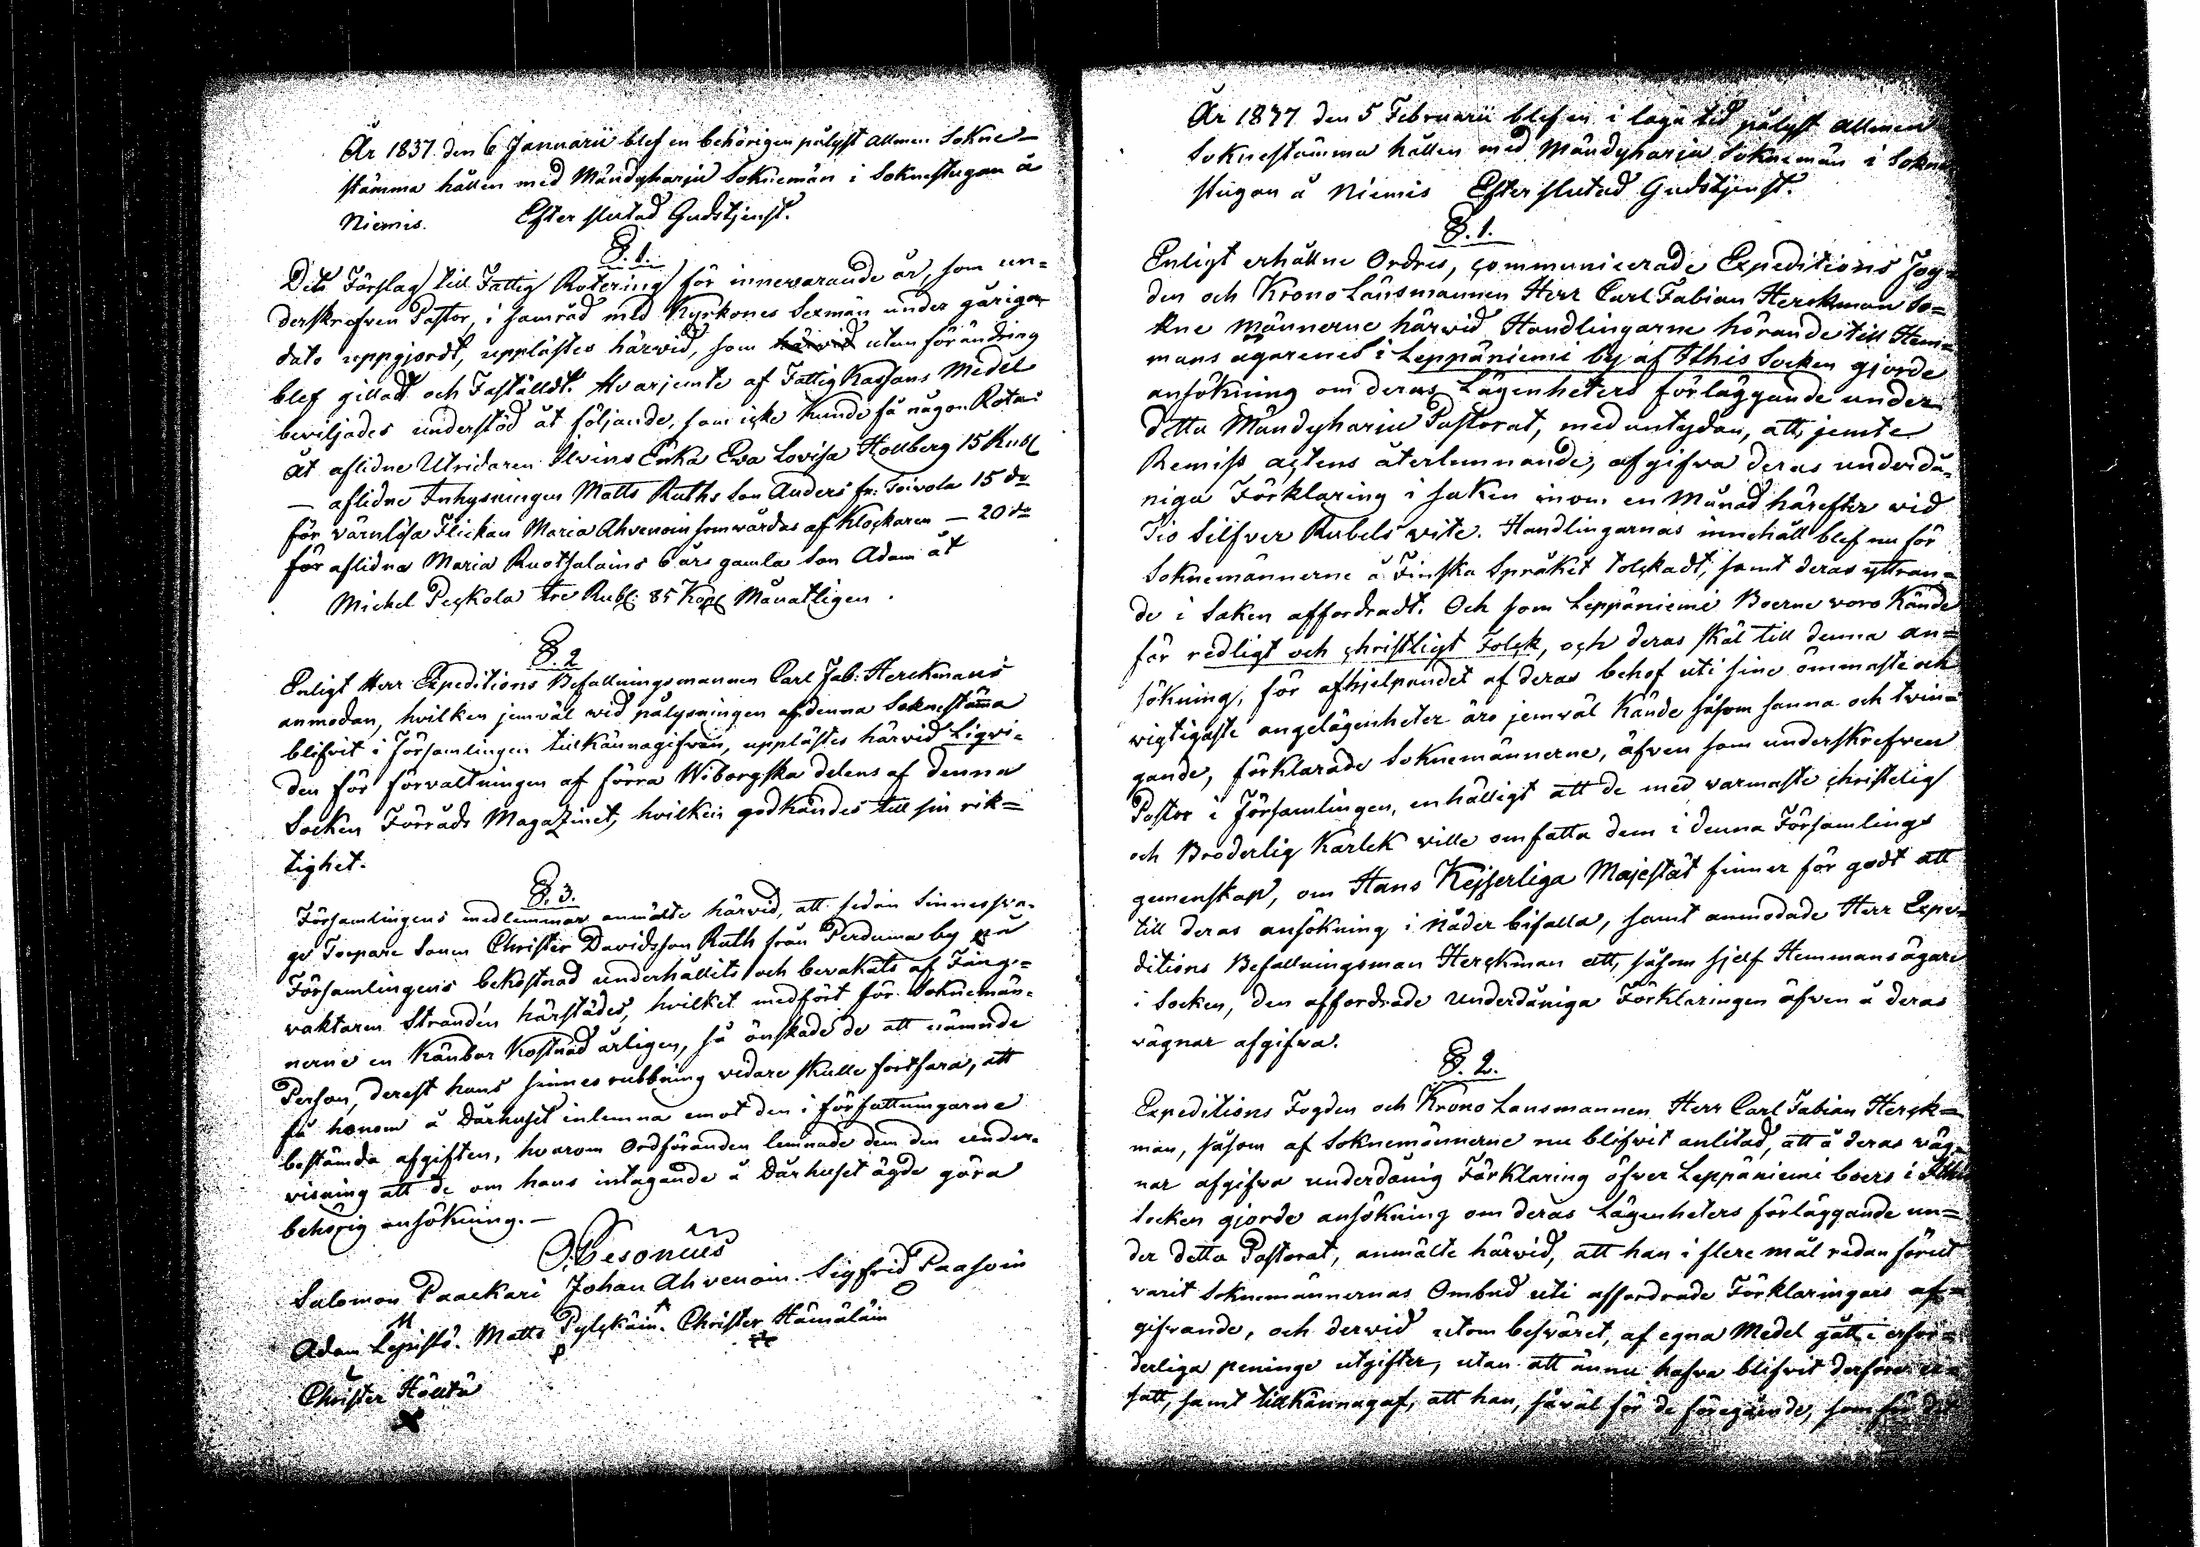 År 1837 den 6 Januarii blef en behörigen pålyst allmen Sokne-
stämma hållen med Mändyharju Soknemän i Soknestugan å
Niemis. Efter slutad Gudstjenst.
§. 1.
Det Förslag till Fattig Rotering för innevarande år, som un-
derskrefven Pastor, i samråd med Kyrkones Sexmän under gårigen
dato uppgjordt, upplästes härwid, som utan förändring
blef gillad och Faställdt. Hvarjemte af Fattig Kassans Medel
beviljades understöd åt följande, som icke kunde få någon Rota:
Åt aflidne Utridaren Ilvins Enka Eva Lovisa Hollberg 15 Rubl
— aflidne Inhysningen Matts Ruths Son Anders fr: Toivola 15 do
för värnlösa Flickan Maria Ahvenain som vårdas af Klockaren — 20 do
för aflidna Maria Ruotsalains 6 års gamla Son Adam åt
Michel Peckola tre Rubl: 85 Kop Månatligen.
§. 2
Enligt Herr Expeditions Befallningsmannen Carl Fab: Herckmans
anmodan, hvilken jemväl vid pålysningen af denna Soknestäma
blifvit i Församlingen tillkännagifvan, upplästes härwid Liqvi-
den för förvaltningen af förra Wiborgska delens af denna
Socken Förråds Magazinet, hvilken godkändes till sin rik=
tighet.
§. 3.
Församlingens medlemmar anmälte härwid, att sedan Sinnessva-
ge Torpare Sonen Christer Davidsson Ruth från Perduma by på
Församlingens bekostnad underhållits och bevakats af Fång-
vaktaren Strandén härstädes, hvilket medfört för Soknemän-
nerne en känbar Kostnad årligen, så önskade de att nämnde
Person, derest hans sinnes rubbning vidare skulle fortfara, att
få honom å Dårhuset inlemna emot den i författningarne
bestämda afgiften, hvarom Ordföranden lemnade dem den under-
visning att de om hans intagande å Dårhuset ägde göra
behörig ansökning.—
O. Cesonius
Salomon Paackari Johan Ahvenain. Sigfrid Paasoin
Adam Lepistö. Matts Pylckäin. Christer Hämäläin
Christer Höltä
År 1837 den 5 Februarii blef en i laga tid pålyst allmen
Soknestämma hållen med Mändyharju Soknemän i Sokne
stugan å Niemis Efter slutad Gudstjenst.
§. 1.
Enligt erhållne Ordres, communicerade Expeditions Fog-
den och Krono Länsmannen Herr Carl Fabian Herckman So=
kne Männerne härwid Handlingarne hörande till Hem-
mans ägarenes i Leppäniemi by af Ithis Socken gjorde
ansökning om deras Lägenheters förläggande under
detta Mändyharju Pastorat, med antydan, att, jemte
Remiss actens återlemnande, afgifva deras underdå-
niga Förklaring i saken inom en Månad härefter wid
Tio Silfver Rubels vite. Handlingarnas innehåll blef nu för
Soknemännerne å Finska Språket tolckadt, samt deras yttran-
de i Saken affordradt. Och som Leppäniemi Boerne voro kände
för redligt och christligt Folck, och deras skäl till denna an=
sökning, för afhjelpandet af deras behof uti sine ömmaste och
vigtigaste angelägenheter äro jemväl kände såsom sanna och tvin-
gande, förklarade Soknemännerne, äfven som underskrefven
Pastor i Församlingen, enhälligt att de med varmaste christelig
och Broderlig Kärlek ville omfatta dem i denna Församlings
gemenskap, om Hans Kejserliga Majestät finner för godt att
till deras ansökning i Nåder bifalla, samt anmodade Herr Expe-
ditions Befallningsman Herckman att, såsom sjelf Hemmansägare
i Socken, den affordrade underdåniga Förklaringen äfven å deras
vägnar afgifva.
§. 2.
Expeditions Fogden och Krono Lansmannen Herr Carl Fabian Herck=
man, såsom af Soknemännerne nu blifvit anlitad, att å deras väg-
nar afgifva underdånig Förklaring öfver Leppäniemi boers i Ithis
Socken gjorde ansökning om deras Lägenheters förläggande un=
der detta Pastorat, anmälte härwid, att han i flere mål redan förut
varit Soknemännernas Ombud uti affordrade Förklaringars af-
gifvande, och dervid utom besväret, af egna Medel gått i erfor-
derliga peninge utgifter, utan att ännu hafva blifvit derföre er-
satt, samt tillkännagaf, att han, såväl för de föregående, som för det